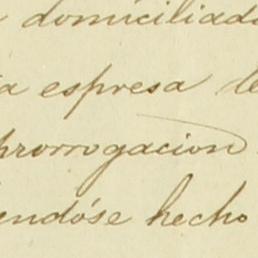 domiciliado
espresa
prorrogacion
endóse hecho